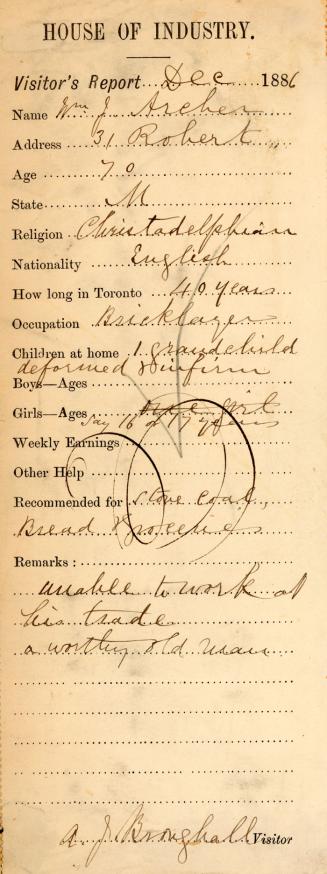 HOUSE OF INDUSTRY.
Visitor's Report Dec 1886
Name Wm J. Archer
Address 31 Robert
Age 70
State M
Religion Christadelphian
Nationality English
How long in Toronto 40 years
Occupation Bricklayer
Children at home 1 grandchild
deformed & infirm
Boys—Ages
Girls—Ages girl
Say 16 or 17 years
Weekly Earnings
Other Help
Recommended for stove coal,
Bread & groceries
Remarks :
unable to work at
his trade
a worthy old man
A. J. Broughall Visitor